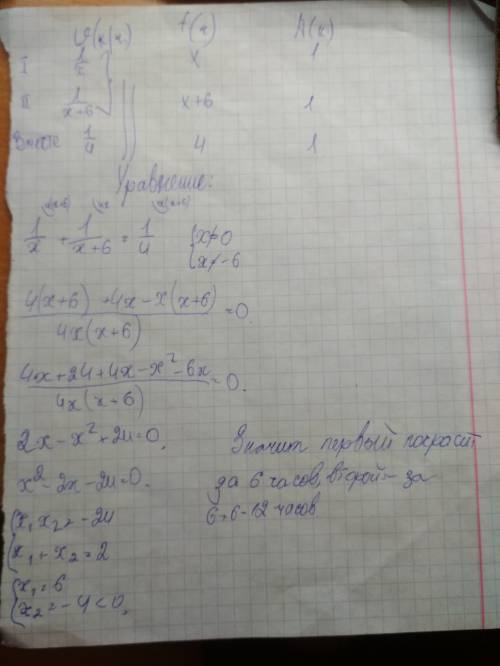 t(ч) A(к)
I 1/x x 1
II 1/(x+6) x+6 1
Вместе 1/4 4 1
Уравнение:
1/x + 1/(x+6) = 1/4 {x≠0
{x≠-6
(4(x+6)+4x-x(x+6))/(4x(x+6)) =0
(4x+24+4x-x²-6x)/(4x(x+6)) =0.
2x-x²+24=0.
x²-2x-24=0.
{x₁x₂=-24
{x₁+x₂=2
{x₁=6
{x₂=-4<0,
Значит первый покрасит
за 6 часов, второй - за
6+6=12 часов